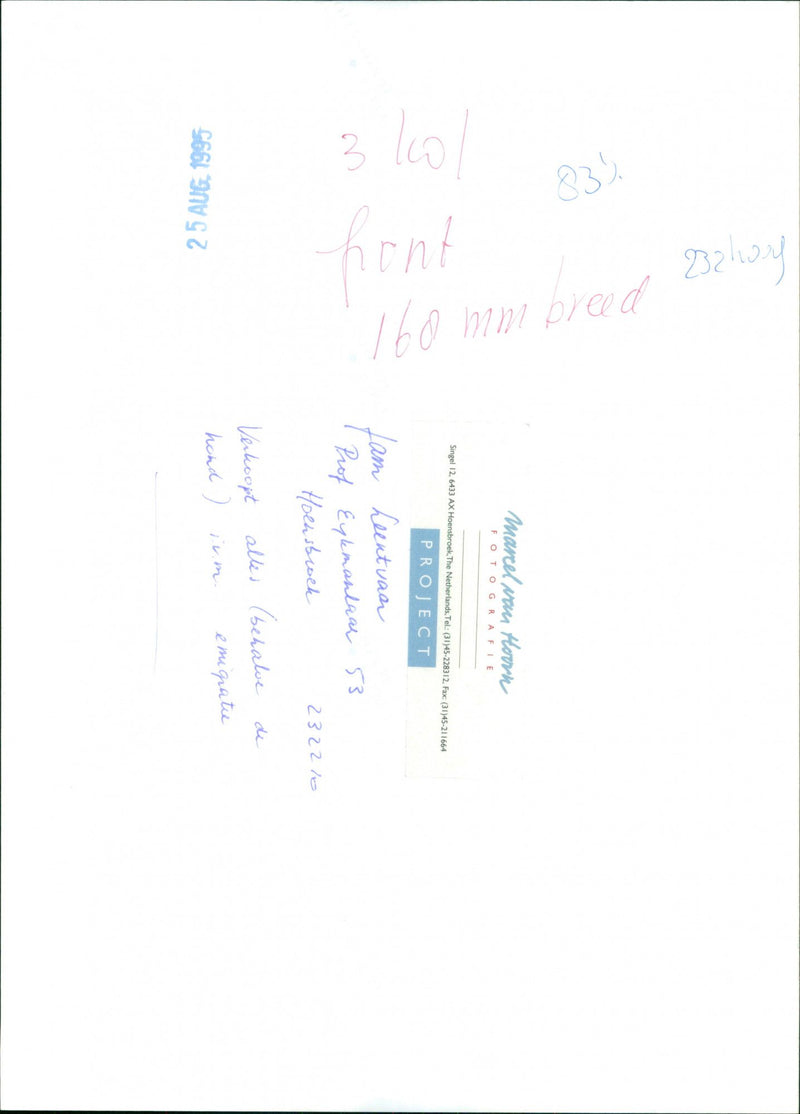 3 kol
83%
front
232 hoog
160 mm breed
25 AUG. 1995
Marcel van Hoorn
FOTOGRAFIE
Singel 12, 6433 AX Hoensbroek, The Netherlands, Tel.: (31)45-228312, Fax: (31)45-211664
PROJECT
fam Leentvaar
Prof Eykmanlaan 53
Hoensbroek 232210
Verkoopt alles (behalve de
hond) i.v.m. emigratie